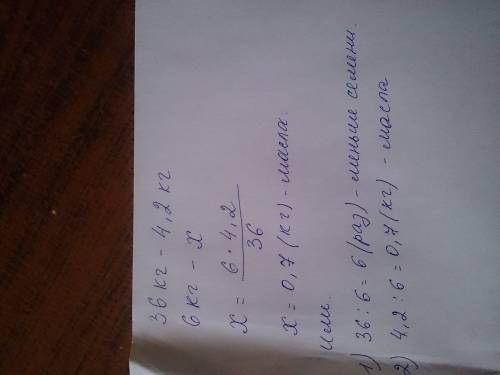 36 кг - 4,2 кг
6 кг - х
х = 6 · 4,2 / 36
х = 0,7 (кг) - масла.
Или.
1) 36 : 6 = 6 (раз) - меньше семени.
2) 4,2 : 6 = 0,7 (кг) - масла